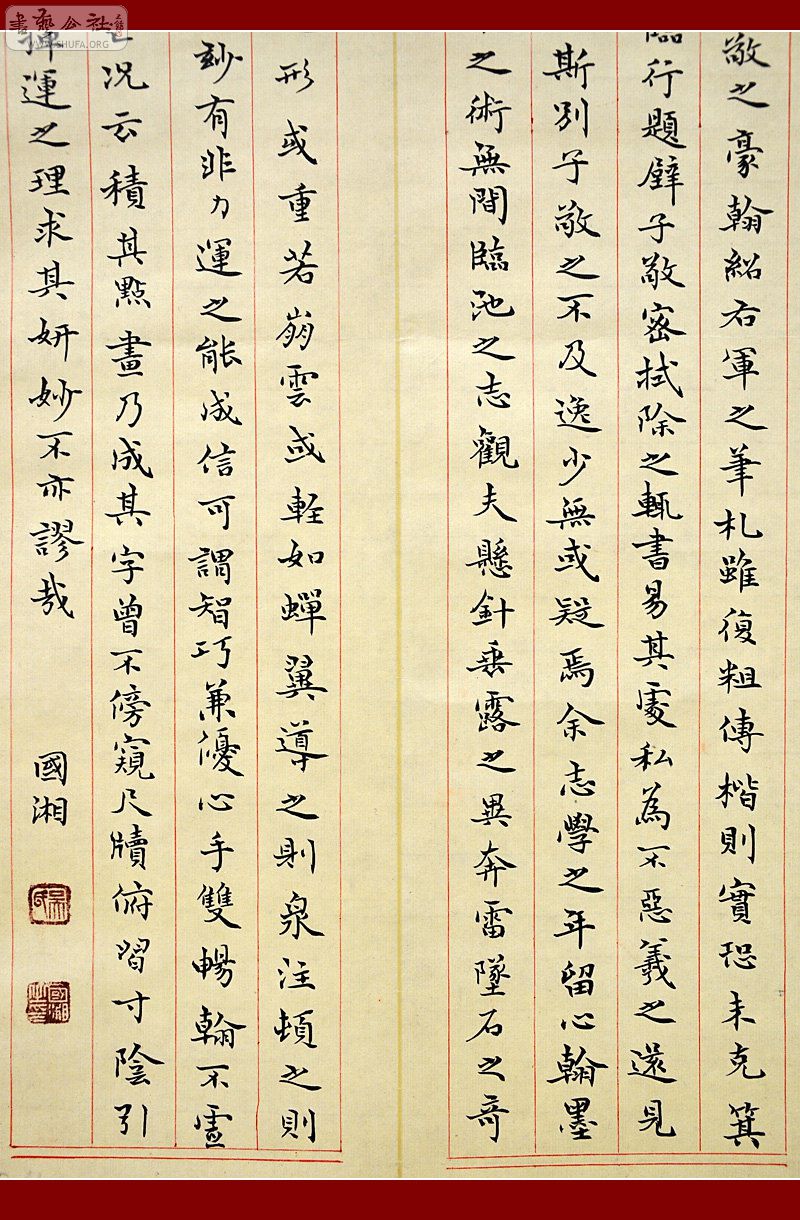 敬之豪翰紹右軍之筆札雖復粗傳楷則實恐未克箕
臨行題壁子敬密拭除之輒書易其處私為不惡羲之還見
斯別子敬之不及逸少無或疑焉余志學之年留心翰墨
之術無間臨池之志觀夫懸針垂露之異奔雷墜石之奇
形或重若崩雲或輕如蟬翼導之則泉注頓之則
妙有非力運之能成信可謂智巧兼優心手雙暢翰不虛
況云積其點畫乃成其字曾不傍窺尺牘俯習寸陰引
揮運之理求其妍妙不亦謬哉
國湘
書藝公社
WWW.SHUFA.ORG